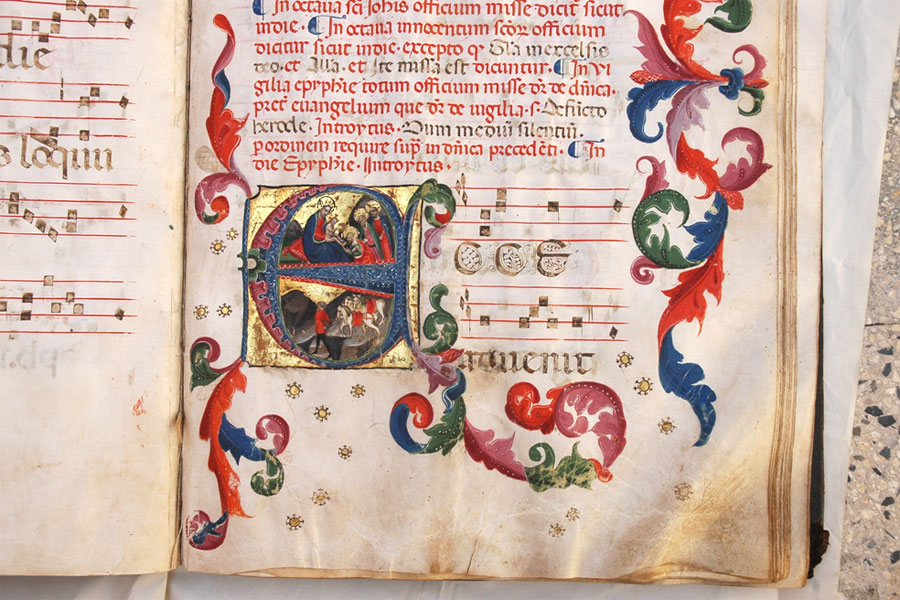 die
s loqui
In octava sci Johis officium misse dicit sicut
indie. In octava innocentum scorᷣ officium
dicitur sicut indie. excepto qꝫ Gla inexcelsis
deo. et Alla. et Ite missa est dicuntur. In vi
gilia epyphie totum officium misse dr de dnica.
pret evangelium que dr de vigilia. s. Defuncto
herode. Introytus. Dum mediu silentiu.
pordinem require sup in dnica precedeti. In
die Epyphie. Introytus.
E CCE
advenit